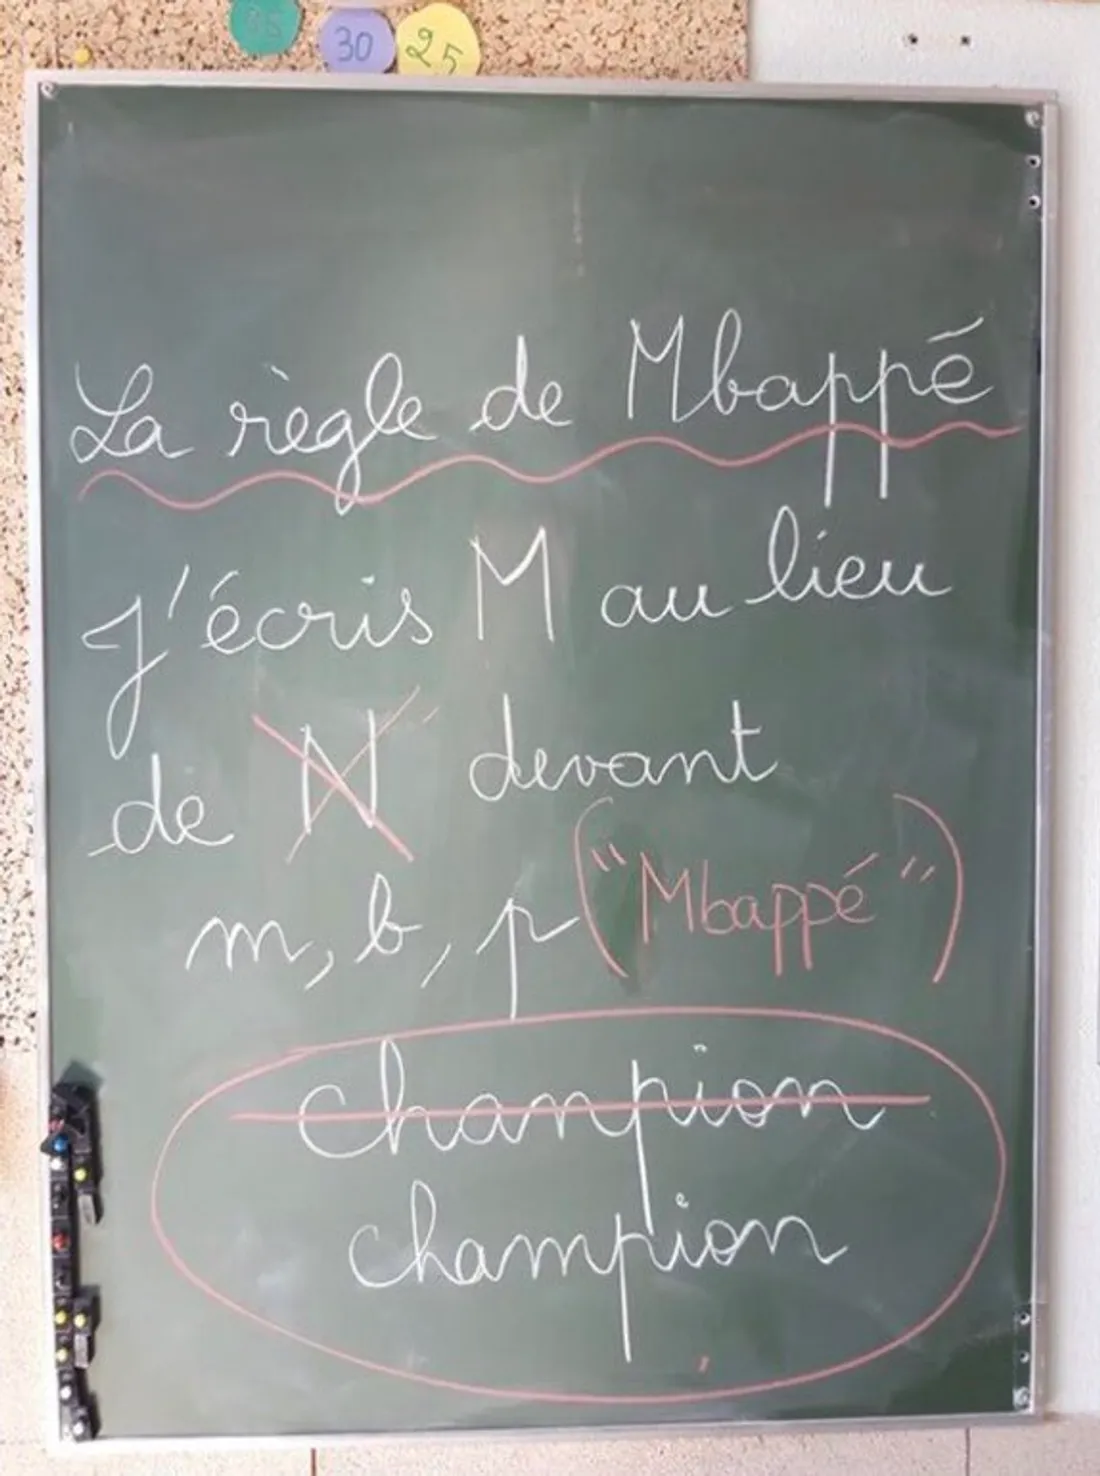 35 30 25
La règle de Mbappé
J'écris M au lieu
de N devant
m, b, p ("Mbappé")
chanpion
champion